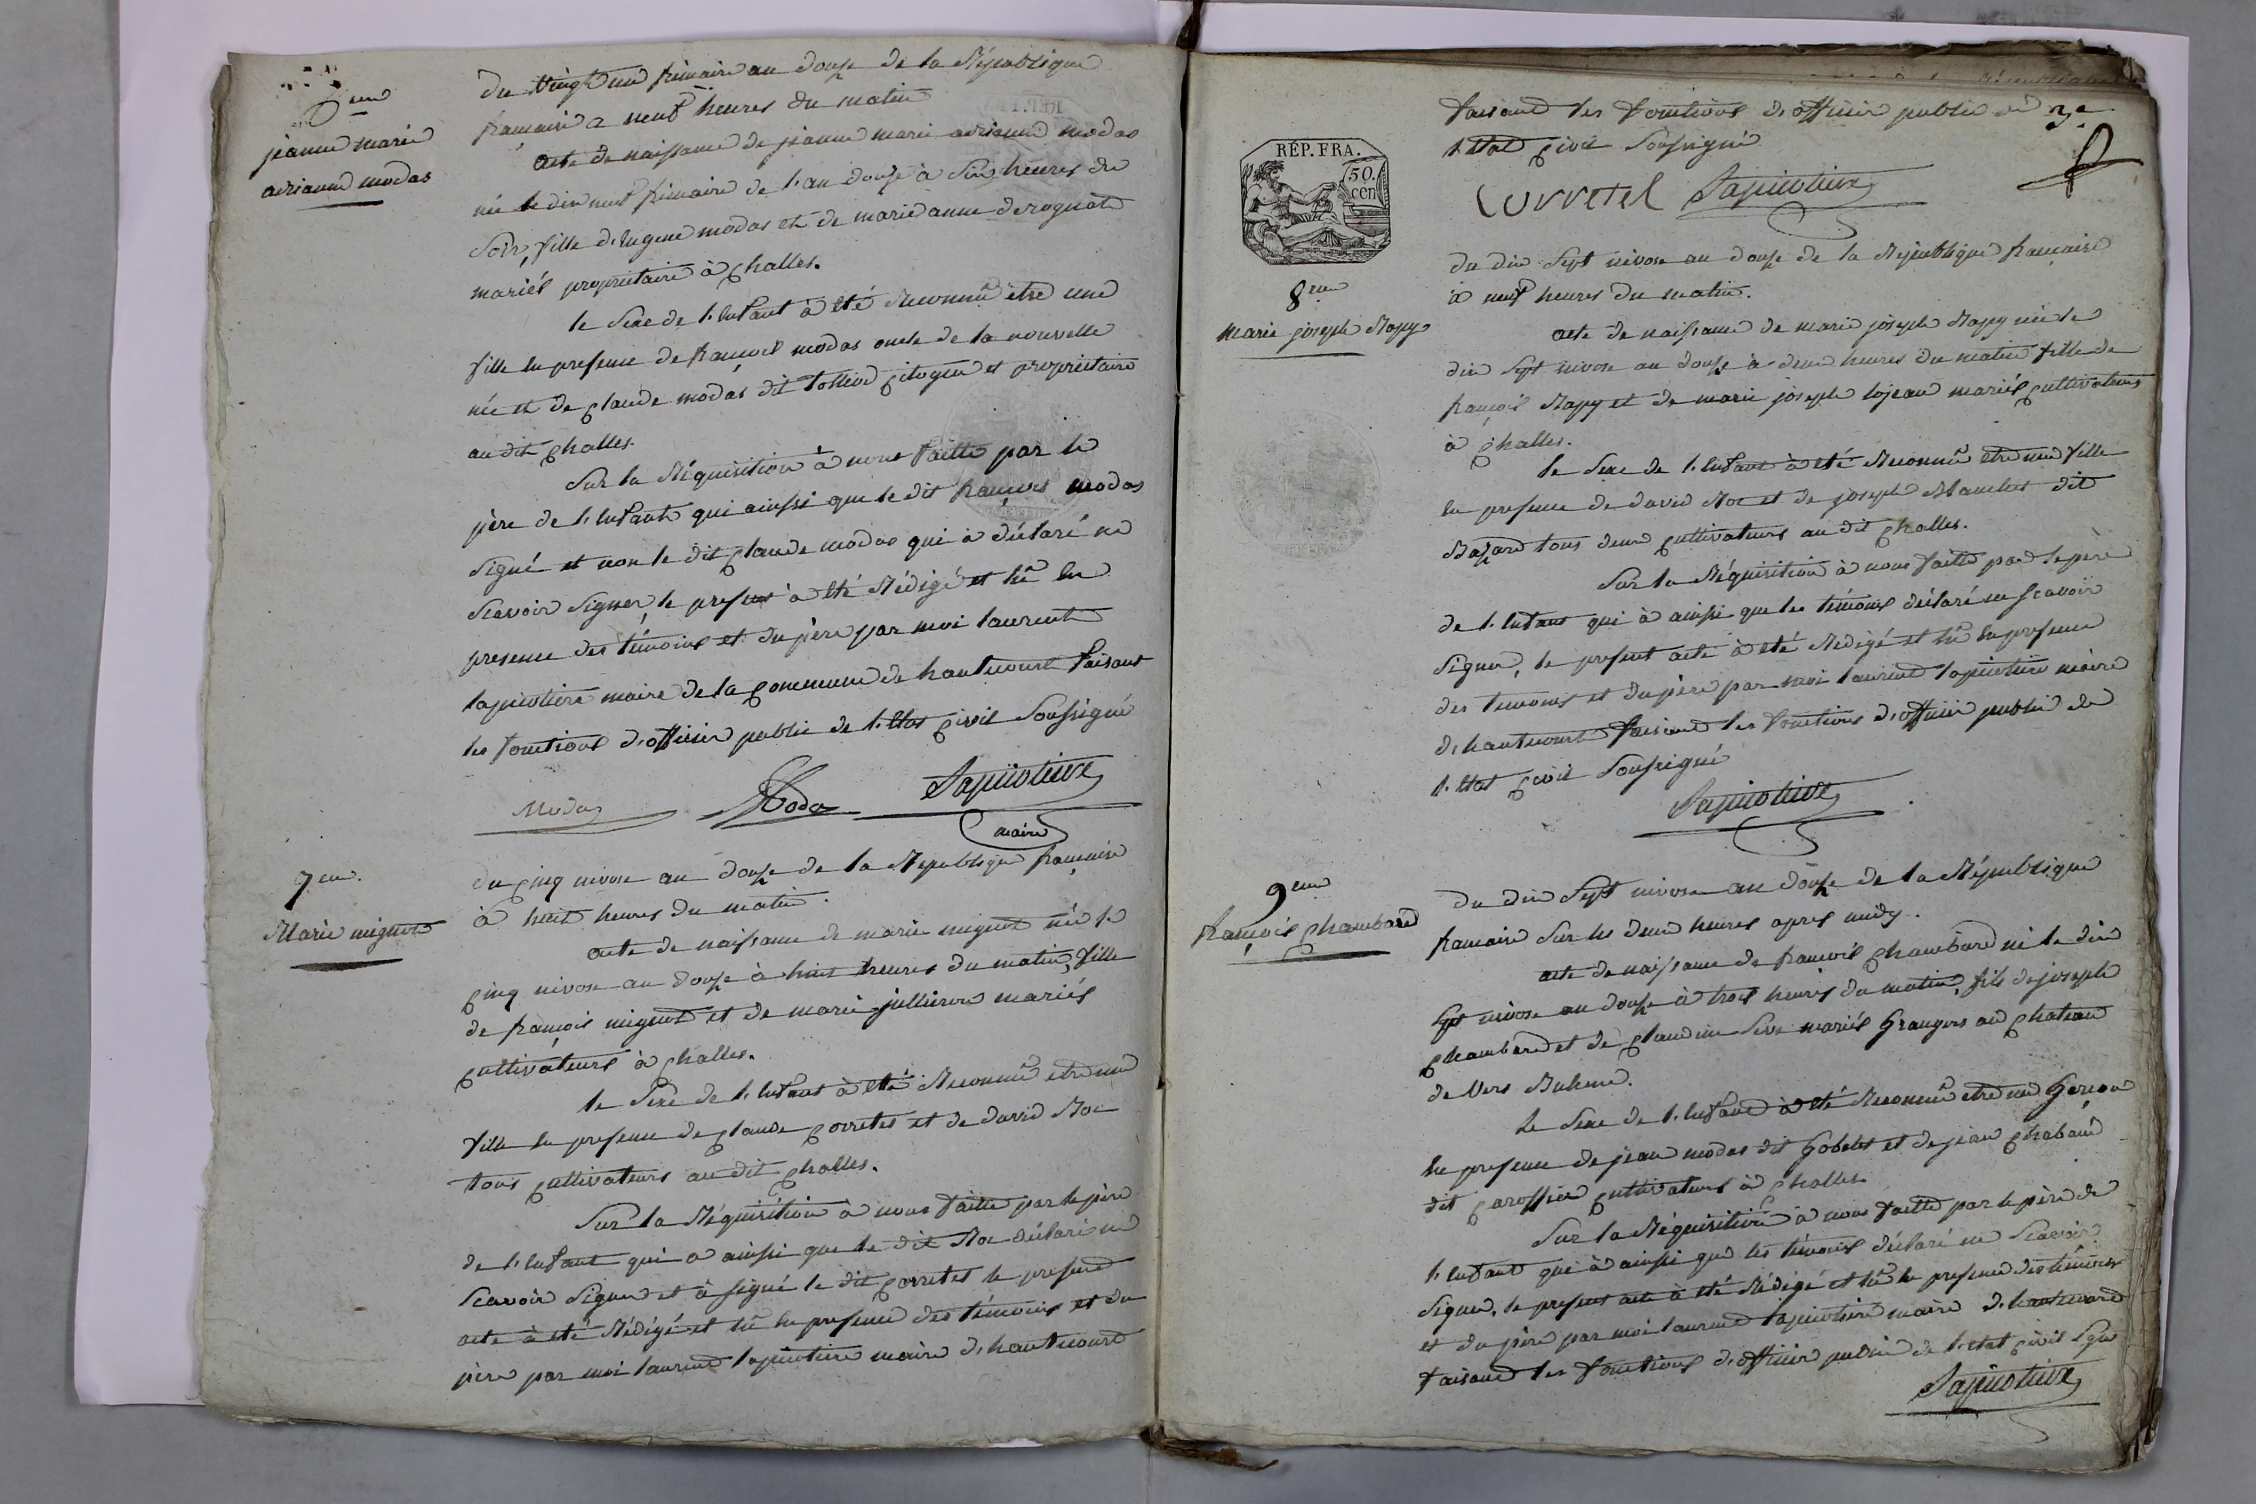 6eme
jeanne marie
adrianne modas
du vingt un frimaire an douze de la République
française a neuf heures du matin
acte de naissance de jeanne marie adrianne modas
née le dix neuf frimaire de l'an douze à six heures du
soir, fille d'eugene modas et de marie anne derognat
mariés propriétaire à Challes.
le sexe de l'enfant à été reconnû être une
fille en presence de françois modas oncle de la nouvelle
née et de Claude modas dit citoyen et proprietaire
au dit Challes.
Sur la Réquisition à nous faitte par le
père de l'enfant qui ainssi que le dit françois modas
signé et non le dit Claude modas qui à déclaré ne
scavoir signer, le present à été Rédigé et lû en
presence des témoins et du père par moi laurent
lapicotiere maire de la Commune de hautecourt faisant
les fonctions d'officier public de l'état Civil soussigné
Modas Modas Lapicotiere
maire
7eme.
Marie mignot
du Cinq nivose an douze de la République française
à huit heures du matin.
acte de naissance de marie mignot née le
Cinq nivose an douze à huit heures du matin, fille
de françois mignot et de marie jullieron mariés
Cultivateurs à Challes.
le sexe de l'enfant à été Reconnû etre une
fille en presence de Claude Corretel et de david Roc
tous Cultivateurs au dit Challes.
Sur la Réquisition à nous faitte par le père
de l'enfant qui a ainssi que le dit Roc déclaré ne
scavoir signer et à signé le dit Corretel le present
acte à été Rédigé et lû en presence des témoins et du
père par moi laurent lapicotiere maire d'hautecourt
3e
faisant les fonctions d'officier public de
l'état Civil soussigné
Corretel Lapicotiere
RÉP. FRA.
50.
cen
8eme
marie joseph Rapy
du dix sept nivose an douze de la République française
à neuf heures du matin.
acte de naissance de marie joseph Rapy née le
dix sept nivose an douze à deux heures du matin fille de
françois Rapy et de marie joseph lojean mariés Cultivateurs
à Challes.
le sexe de l'enfant à été Reconnû etre une fille
en presence de david Roc et de joseph Blanchet dit
Bazard tous deux Cultivateurs au dit Challes.
Sur la Réquisition à nous faitte par le père
de l'enfant qui à ainssi que les témoins déclaré ne scavoir
signer, le present acte à été Rédigé et lû en presence
des temoins et du père par moi laurent lapicotiere maire
d'hautecourt faisant les fonctions d'officier public de
l'état Civil soussigné
Lapicotiere
9eme
François Chambard
du dix sept nivose an douze de la République
francaise sur les deux heures apres midy.
acte de naissance de françois Chambard né le dix
sept nivose an douze à trois heures du matin, fils de joseph
Chambard et de Claudine Seve mariés Grangers au Chateau
de Vers Buhenc.
le sexe de l'enfant à été Reconnû etre un Garçon
en presence de jean modas dit Gobelet et de jean Chaband
dit Carossier Cultivateurs à Challes.
Sur la Réquisition à nous faitte par le père de
l'enfant qui à ainssi que les témoins déclaré ne scavoir
signer. le present acte à été Rédigé et lû en presence des témoins
et du père par moi laurent lapicotiere maire d'hautecourt
faisant les fonctions d'officier public de l'état Civil sgné
Lapicotiere